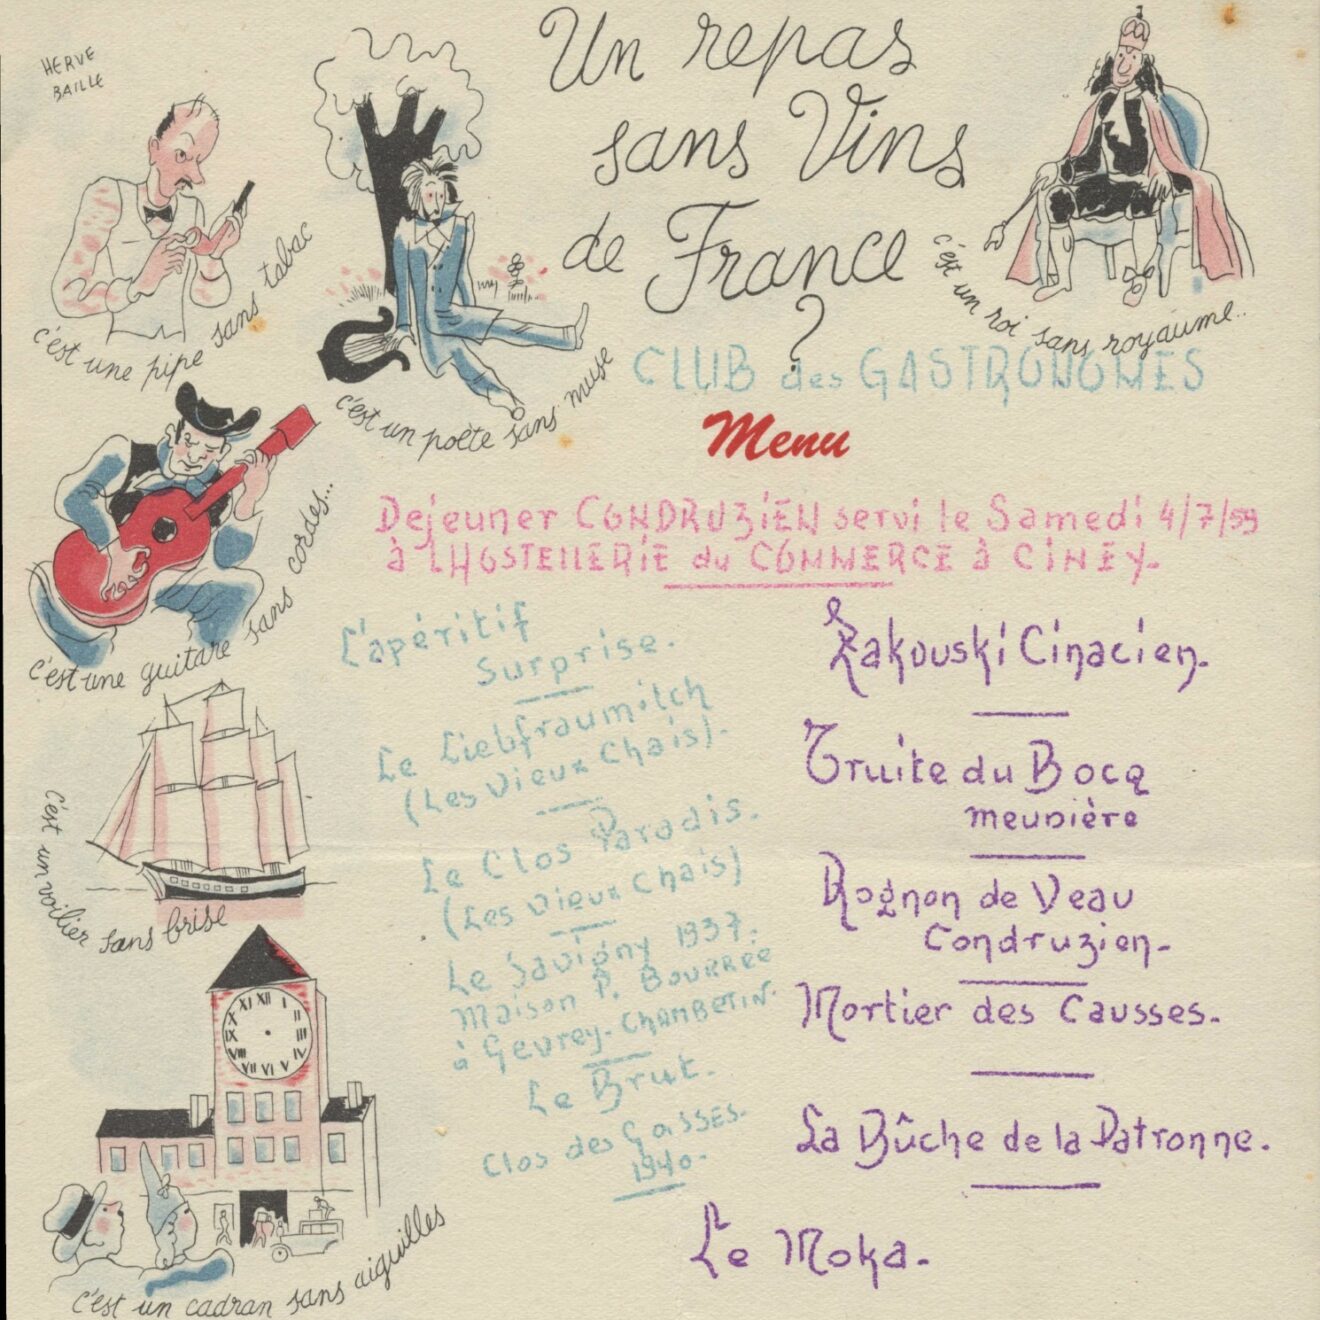 HERVE
BAILLE
Un repas
sans Vins
de France
?
c'est une pipe sans tabac
c'est un poète sans muse
c'est un roi sans royaume..
c'est une guitare sans cordes...
c'est un voilier sans brise
c'est un cadran sans aiguilles
XII I II III IV V VI VII VIII IX X XI
CLUB des GASTRONOMES
Menu
Dejeuner CONDRUZiEN servi le Samedi 4/7/59
à LHOSTELLERIE du COMMERCE à CiNEY.
L'apéritif
Surprise.
Le Liebfraumilch
(Les Vieux Chais).
Le Clos Paradis.
(Les Vieux Chais)
Le Savigny 1937.
Maison P. BOURRÉE
à Gevrey-CHAMBERTIN.
Le Brut.
Clos des GaSSES.
1940.
Zakouski Cinacien.
Truite du Bocq
meunière
Rognon de Veau
Condruzien.
Mortier des Causses.
La Bûche de la Patronne.
Le Moka.